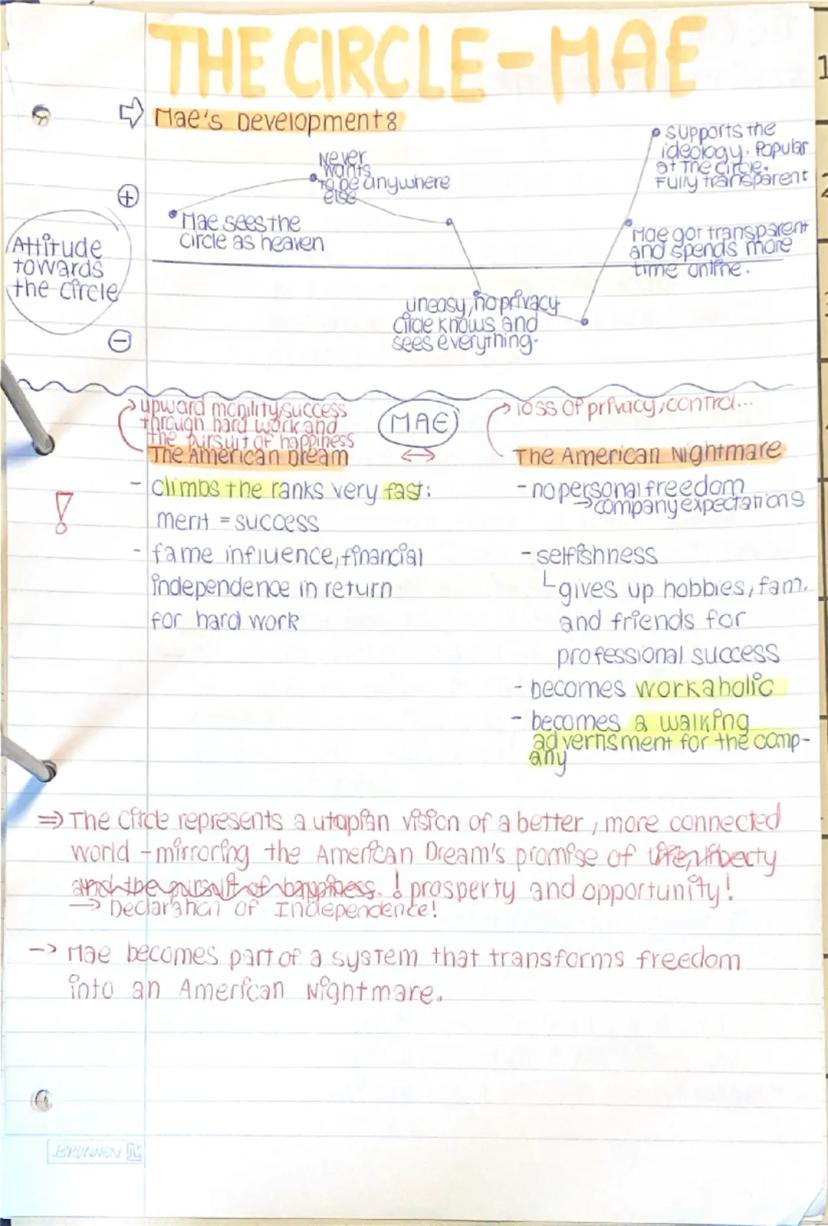 THE CIRCLE - MAE
⇨ Mae's Development:
+
Attitude
towards
the circle
-
Mae sees the
circle as heaven
Never
wants
to be anywhere
else
uneasy, no privacy
Circle knows and
sees everything.
Mae got transparent
and spends more
time online.
supports the
ideology. Popular
at the circle.
Fully transparent
upward mobility, success
through hard work and
the pursuit of happiness
The American Dream
MAE
↔
loss of privacy, control...
The American Nightmare
!
- climbs the ranks very fast:
merit = success
- fame influence, financial
independence in return
for hard work
- no personal freedom
→ company expectations
- selfishness
gives up hobbies, fam.
and friends for
professional success
- becomes workaholic
- becomes a walking
advertisment for the comp-
any
⇒ The Circle represents a utopian vision of a better, more connected
world - mirroring the American Dream's promise of life, liberty
and the pursuit of happiness. ! prosperty and opportunity!
→ Declaration of Independence!
→ Mae becomes part of a system that transforms freedom
into an American Nightmare.
BRUNNEN
1
2
3